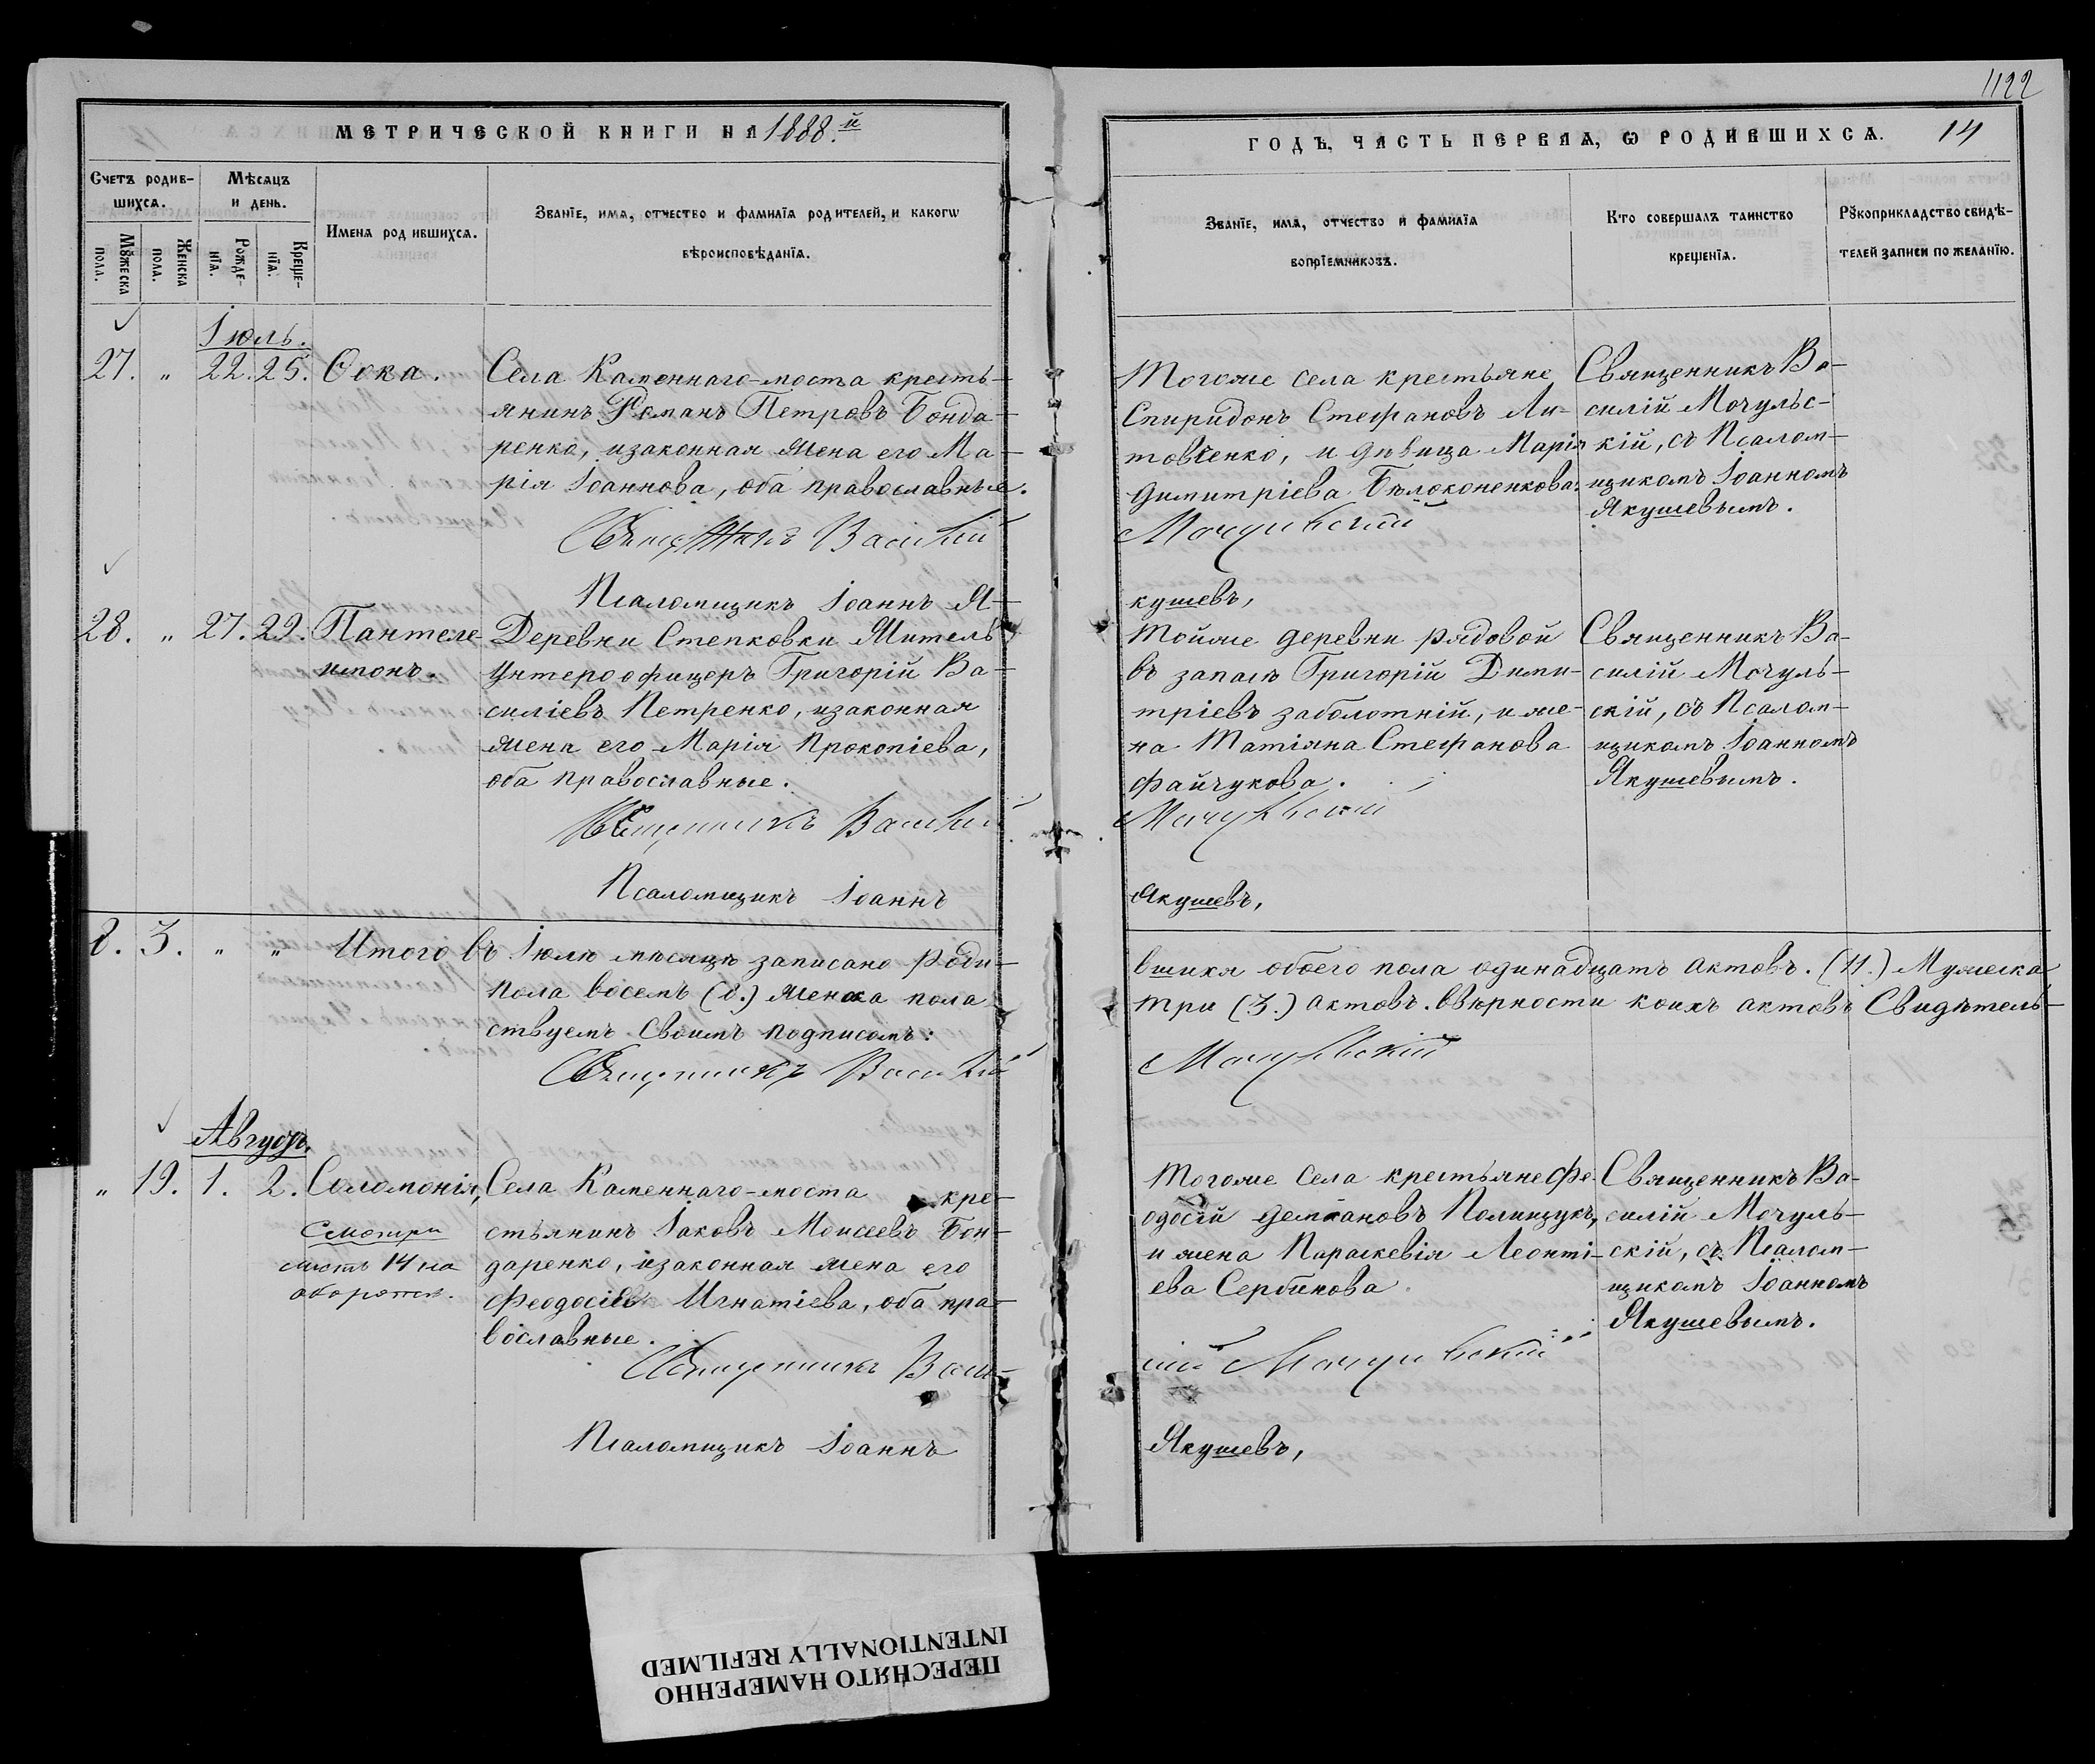 1122
МЕТРИЧЕСКОЙ КНИГИ НА 1888.й
ГОДЪ, ЧАСТЬ ПЕРВАЯ, Ѡ РОДИВШИХСѦ. 14
Счетъ родив-
шихся.
Мѣсяцъ
и день.
Мꙋжеска
пола.
Женска
пола.
Рожде-
нїя.
Креще-
нїя.
Имена родившихся.
Званїе, имя, отчество и фамилїя родителей, и какогѡ
вѣроисповѣданїя.
Званїе, имя, отчество и фамилїя
воспрїемниковъ.
Кто совершалъ таинство
крещенїя.
Рꙋкоприкладство свидѣ-
телей записи по желанїю.
Іюль.
27. „ 22. 25. Ѳока.
Села Каменнаго-моста кресть-
янинъ Романъ Петровъ Бонда-
ренко, изаконная жена его Ма-
рія Іоаннова, оба православные.
Священникъ Василій
Псаломщикъ Іоаннъ Я-
Тогоже села крестьяне
Спиридонъ Стефановъ Ли-
товченко, и дѣвица Марія
Димитріева Бѣлоконенкова.
Мочульскій
кушевъ,
Священникъ Ва-
силій Мочульс-
кій, съ Псалом-
щикомъ Іоанномъ
Якушевымъ.
28. „ 27. 29. Пантеле-
имонъ.
Деревни Степковки Житель
Унтерофицеръ Григорій Ва-
силіевъ Петренко, изаконная
жена его Марія Прокопіева,
оба православные.
Священникъ Василій
Псаломщикъ Іоаннъ
Тойже деревни рядовой
въ запасѣ Григорій Дими-
тріевъ заболотній, и же-
на Татіяна Стефанова
Файчукова.
Мочульскій
Якушевъ,
Священникъ Ва-
силій Мочуль-
скій, съ Псалом-
щикомъ Іоанномъ
Якушевымъ.
8. 3. „ „ Итого въ Іюлѣ мѣсяцѣ записано роди-
вшихя обоего пола одинадцать актовъ. (11.) Мужеска
пола восемъ (8.) женска пола
три (3.) актовъ. ввѣрности коихъ актовъ Свидѣтель-
ствуемъ своимъ подписомъ:
Священникъ Василій
Мочульскій
Августъ.
„ 19. 1. 2. Соломонія,
Смотри
листъ 14 на
оборотѣ.
Села Каменнаго-моста кре-
стьянинъ Іаковъ Моисеевъ Бон-
даренко, изаконная жена его
Феодосія Игнатіева, оба пра-
вославные.
Священникъ Васи-
Псаломщикъ Іоаннъ
Тогоже села крестьяне Фе-
одосій демѣановъ Полищукъ,
и жена Параскевія Леонті-
ева Сербинова.
лій Мочульскій
Якушевъ,
Священникъ Ва-
силій Мочуль-
скій, съ Псалом-
щикомъ Іоанномъ
Якушевымъ.
ПЕРЕСНЯТО НАМЕРЕННО
INTENTIONALLY REFILMED